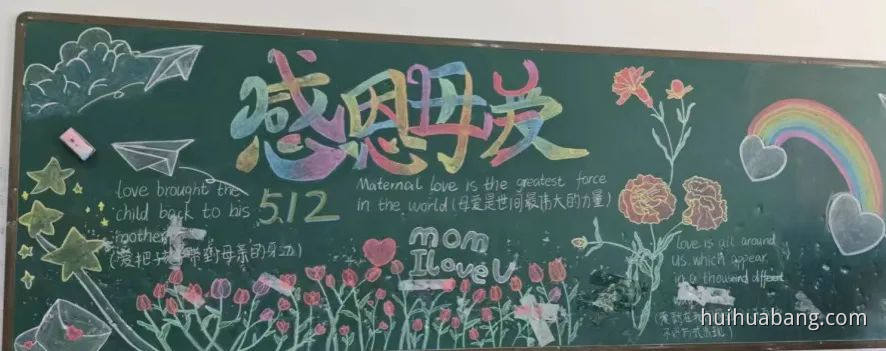 感恩母爱
Love brought the
child back to his
mother
5.12
Maternal love is the greatest force
in the world (母爱是世间最伟大的力量)
mom
I love U
love is all around
us. which appear
in a thousand
huihuabang.com